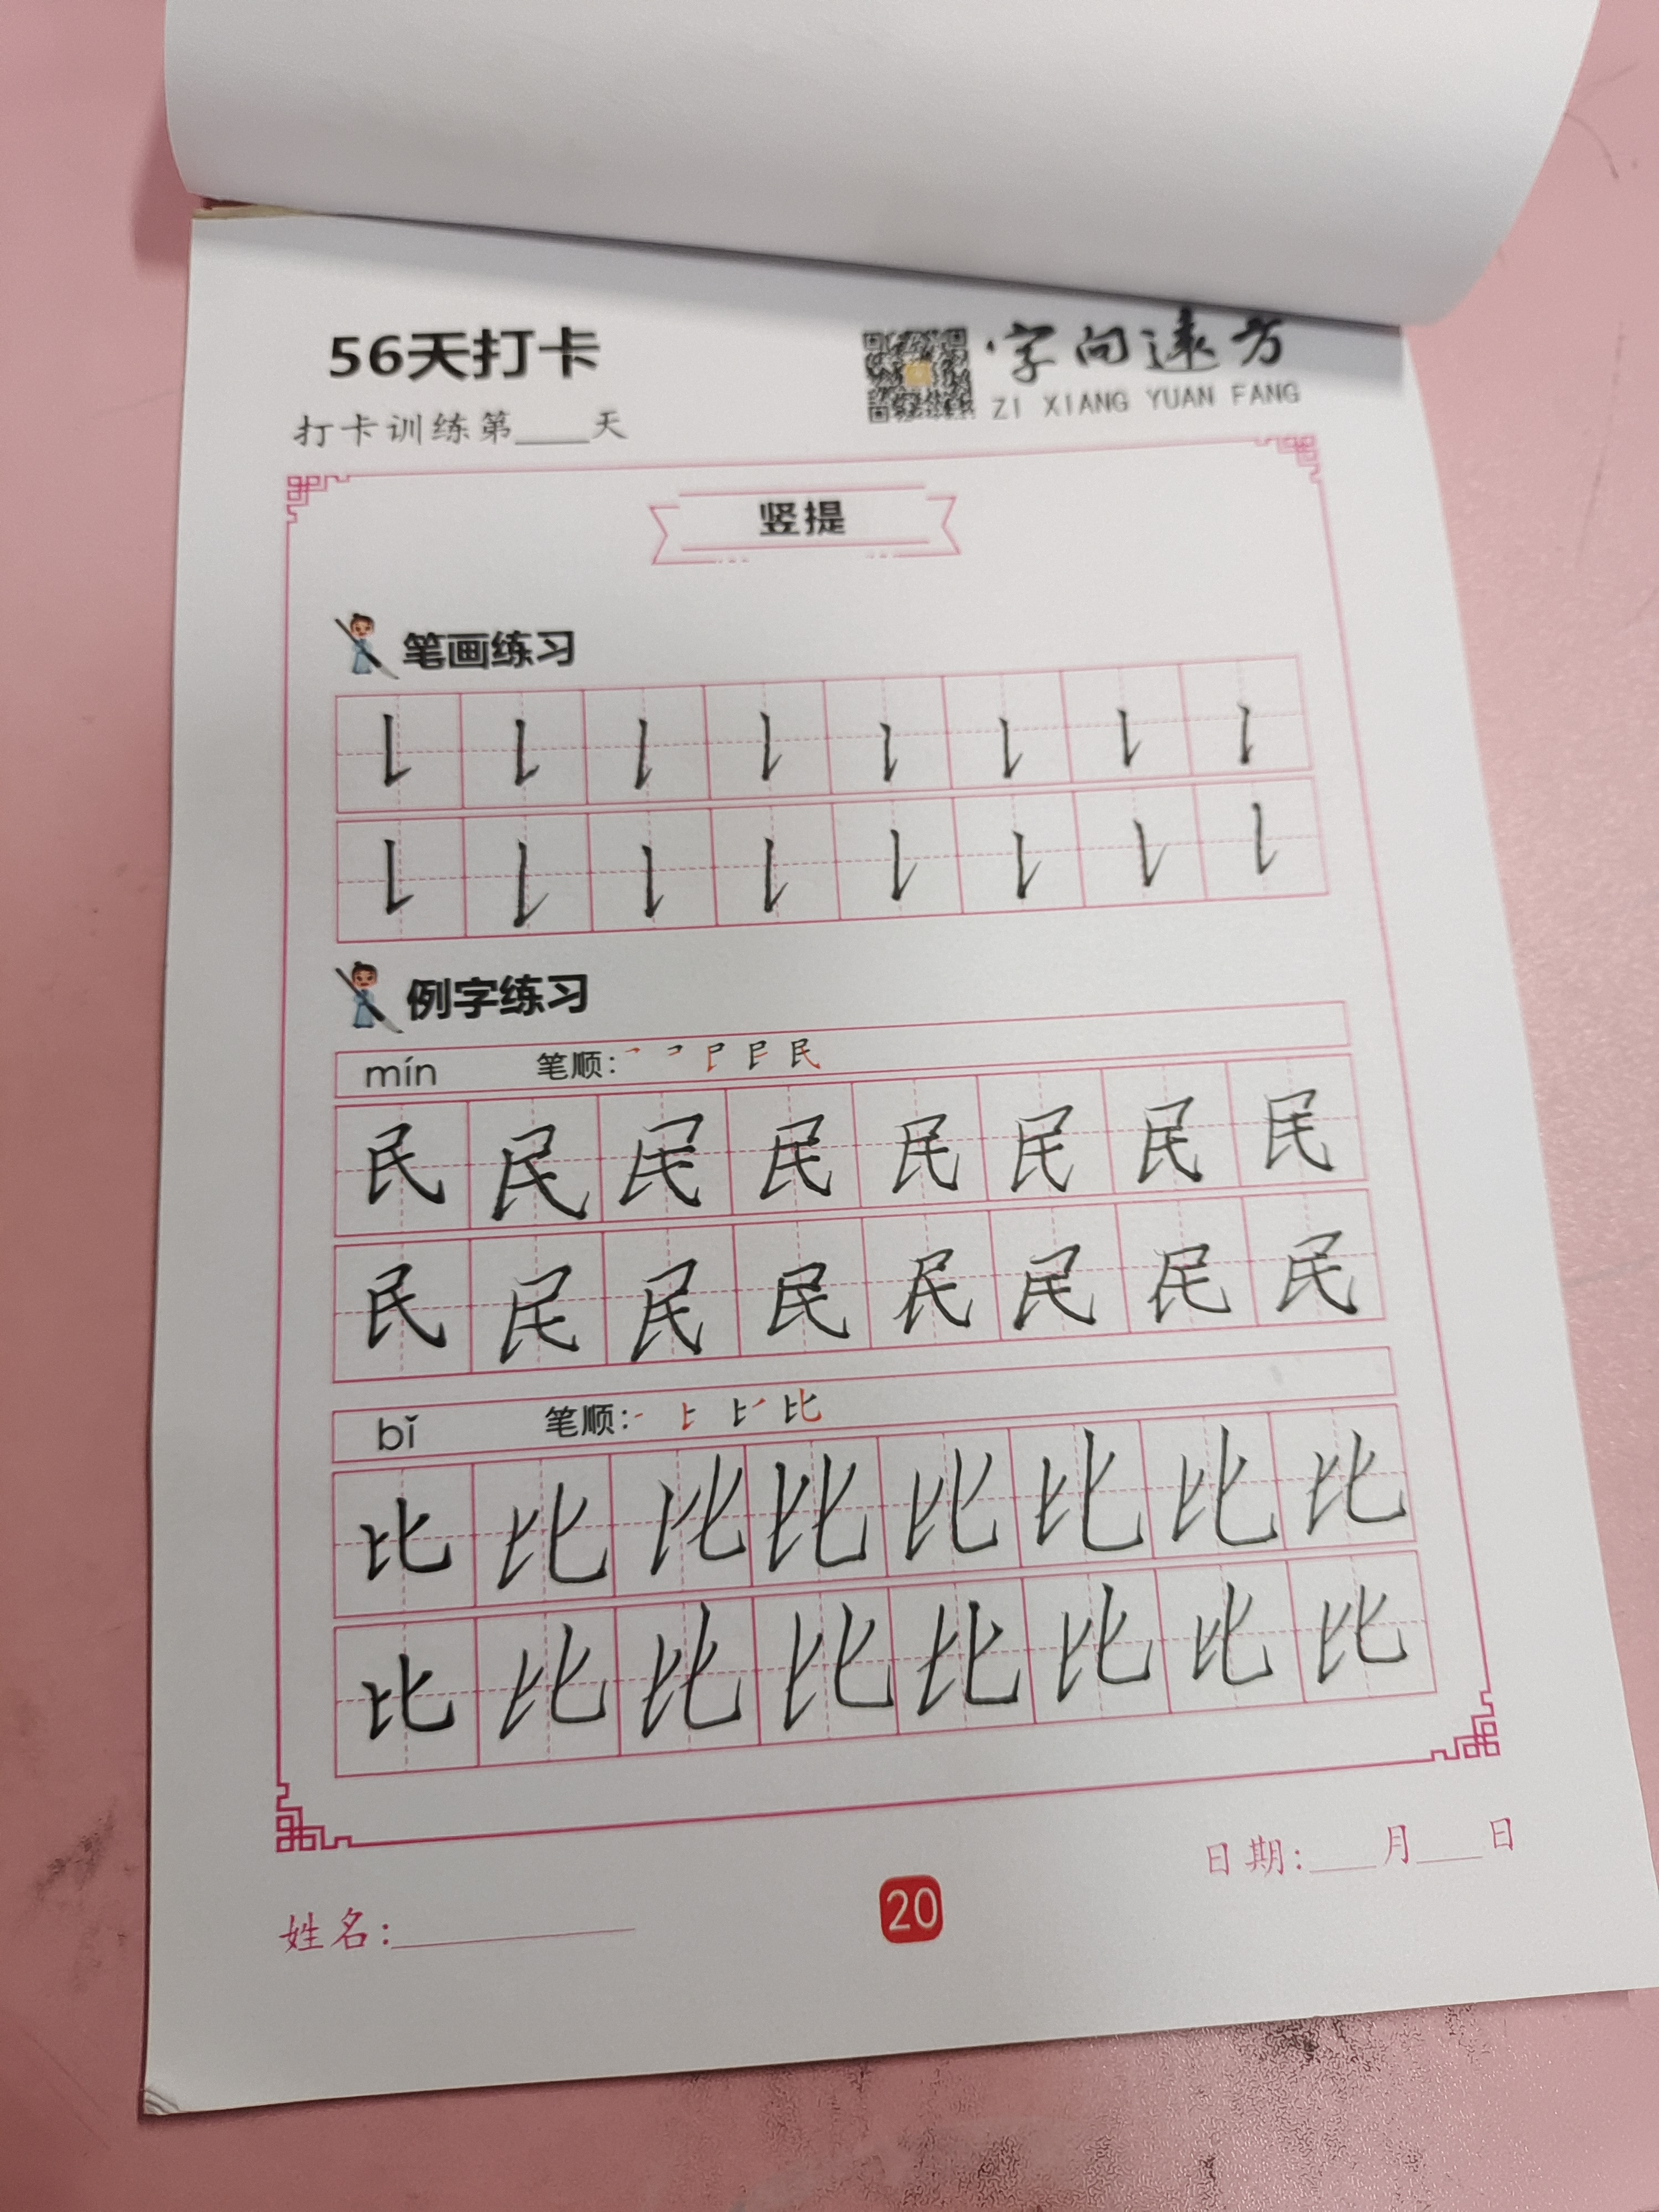 56天打卡
字向远方
ZI XIANG YUAN FANG
打卡训练第____天
竖提
笔画练习
㇙ ㇙ ㇙ ㇙ ㇙ ㇙ ㇙ ㇙
㇙ ㇙ ㇙ ㇙ ㇙ ㇙ ㇙ ㇙
例字练习
mín 笔顺: 民
民 民 民 民 民 民 民 民
民 民 民 民 民 民 民 民
bǐ 笔顺: 比
比 比 比 比 比 比 比 比
比 比 比 比 比 比 比 比
日期:____月____日
姓名:____________
20